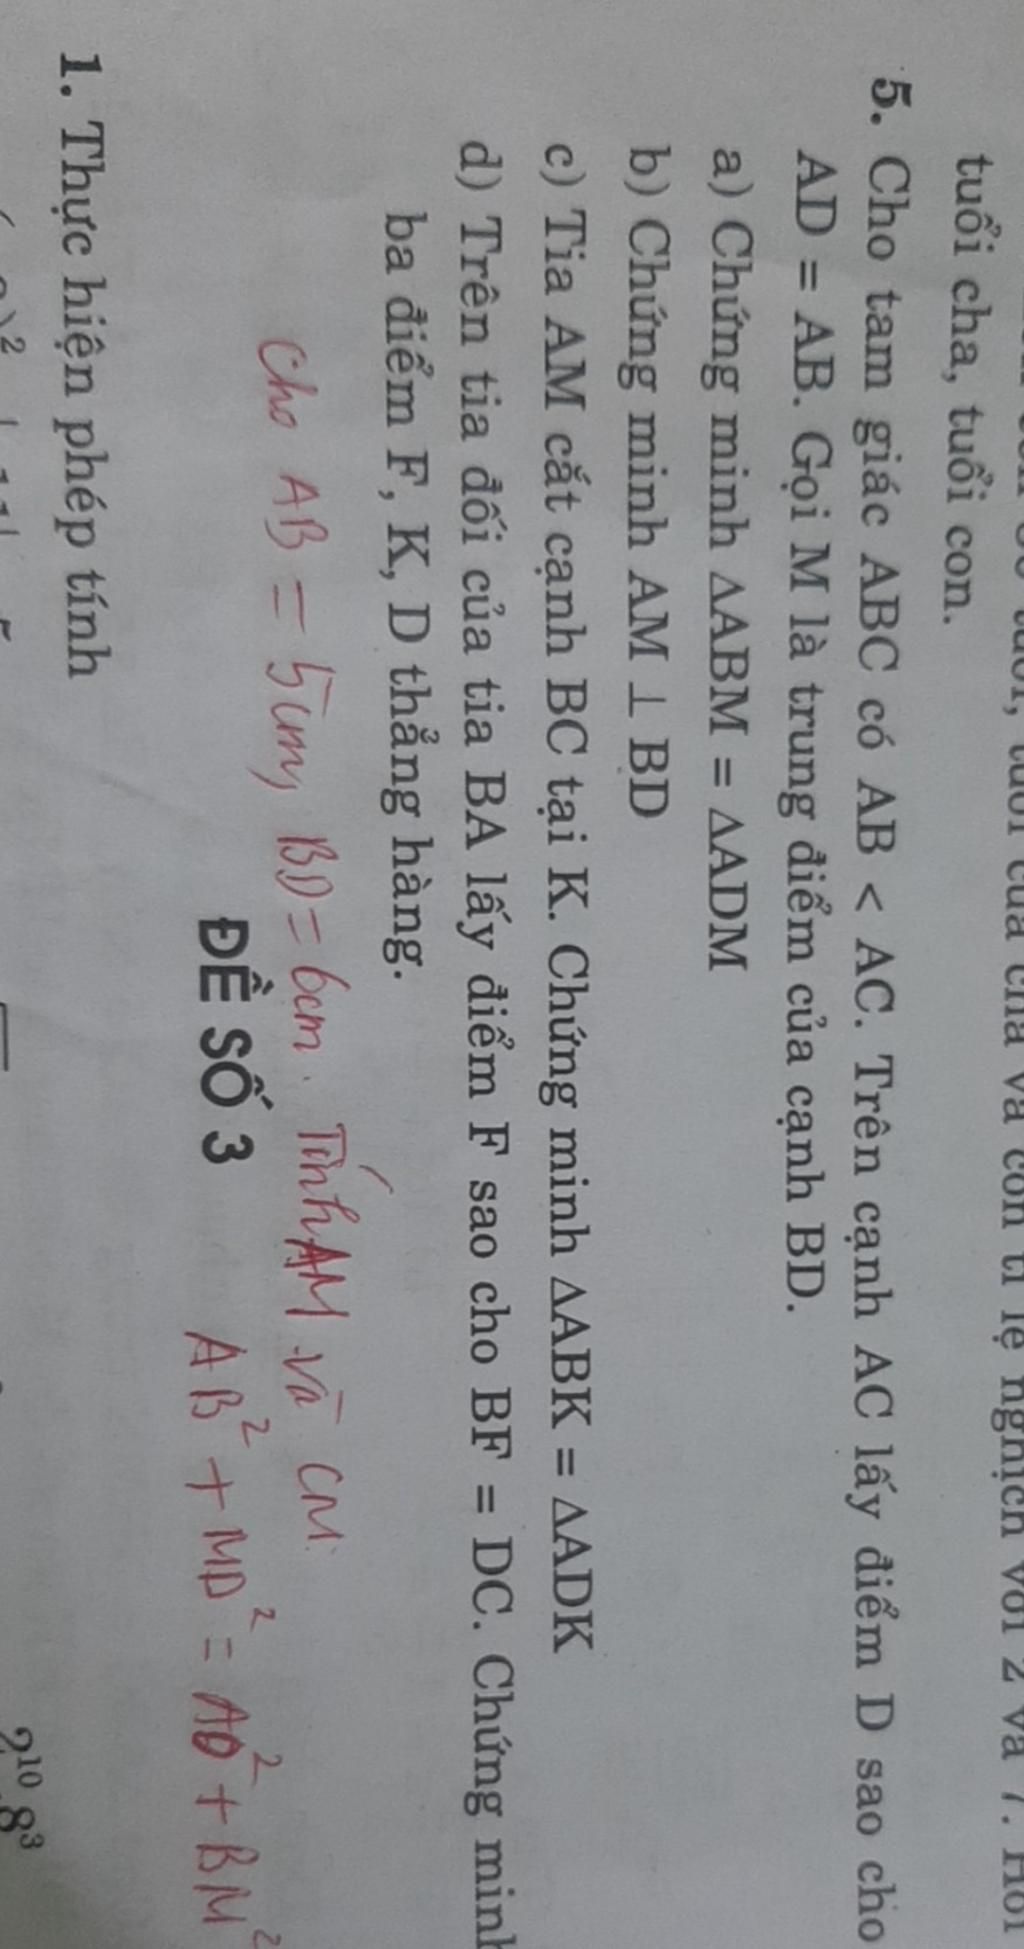 tuổi, tuổi của cha và con tỉ lệ nghịch với 2 và 7. Hỏi
tuổi cha, tuổi con.
5. Cho tam giác ABC có AB < AC. Trên cạnh AC lấy điểm D sao cho
AD = AB. Gọi M là trung điểm của cạnh BD.
a) Chứng minh ΔABM = ΔADM
b) Chứng minh AM ⊥ BD
c) Tia AM cắt cạnh BC tại K. Chứng minh ΔABK = ΔADK
d) Trên tia đối của tia BA lấy điểm F sao cho BF = DC. Chứng minh
ba điểm F, K, D thẳng hàng.
Cho AB = 5cm, BD = 6cm. Tính AM và CM.
ĐỀ SỐ 3
AB² + MD² = AD² + BM²
1. Thực hiện phép tính
2¹⁰ 8³